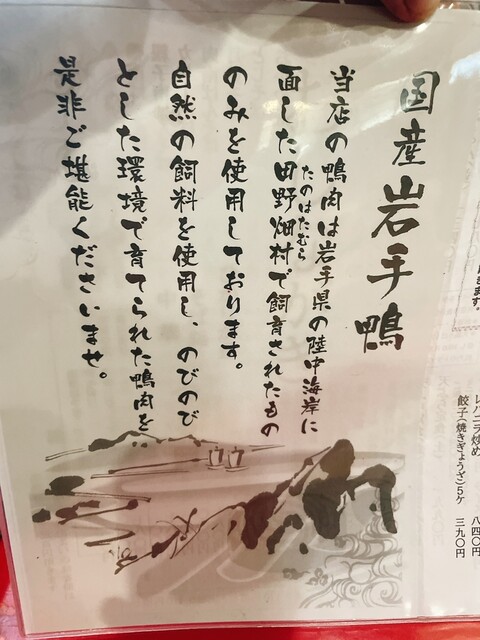 国産岩手鴨
当店の鴨肉は岩手県の陸中海岸に
たのはたむら
面した田野畑村で飼育されたもの
のみを使用しております。
自然の飼料を使用し、のびのび
とした環境で育てられた鴨肉を
是非ご堪能くださいませ。
ます。
レバニラ炒め 八四〇円
餃子(焼きぎょうざ)5ケ 三九〇円